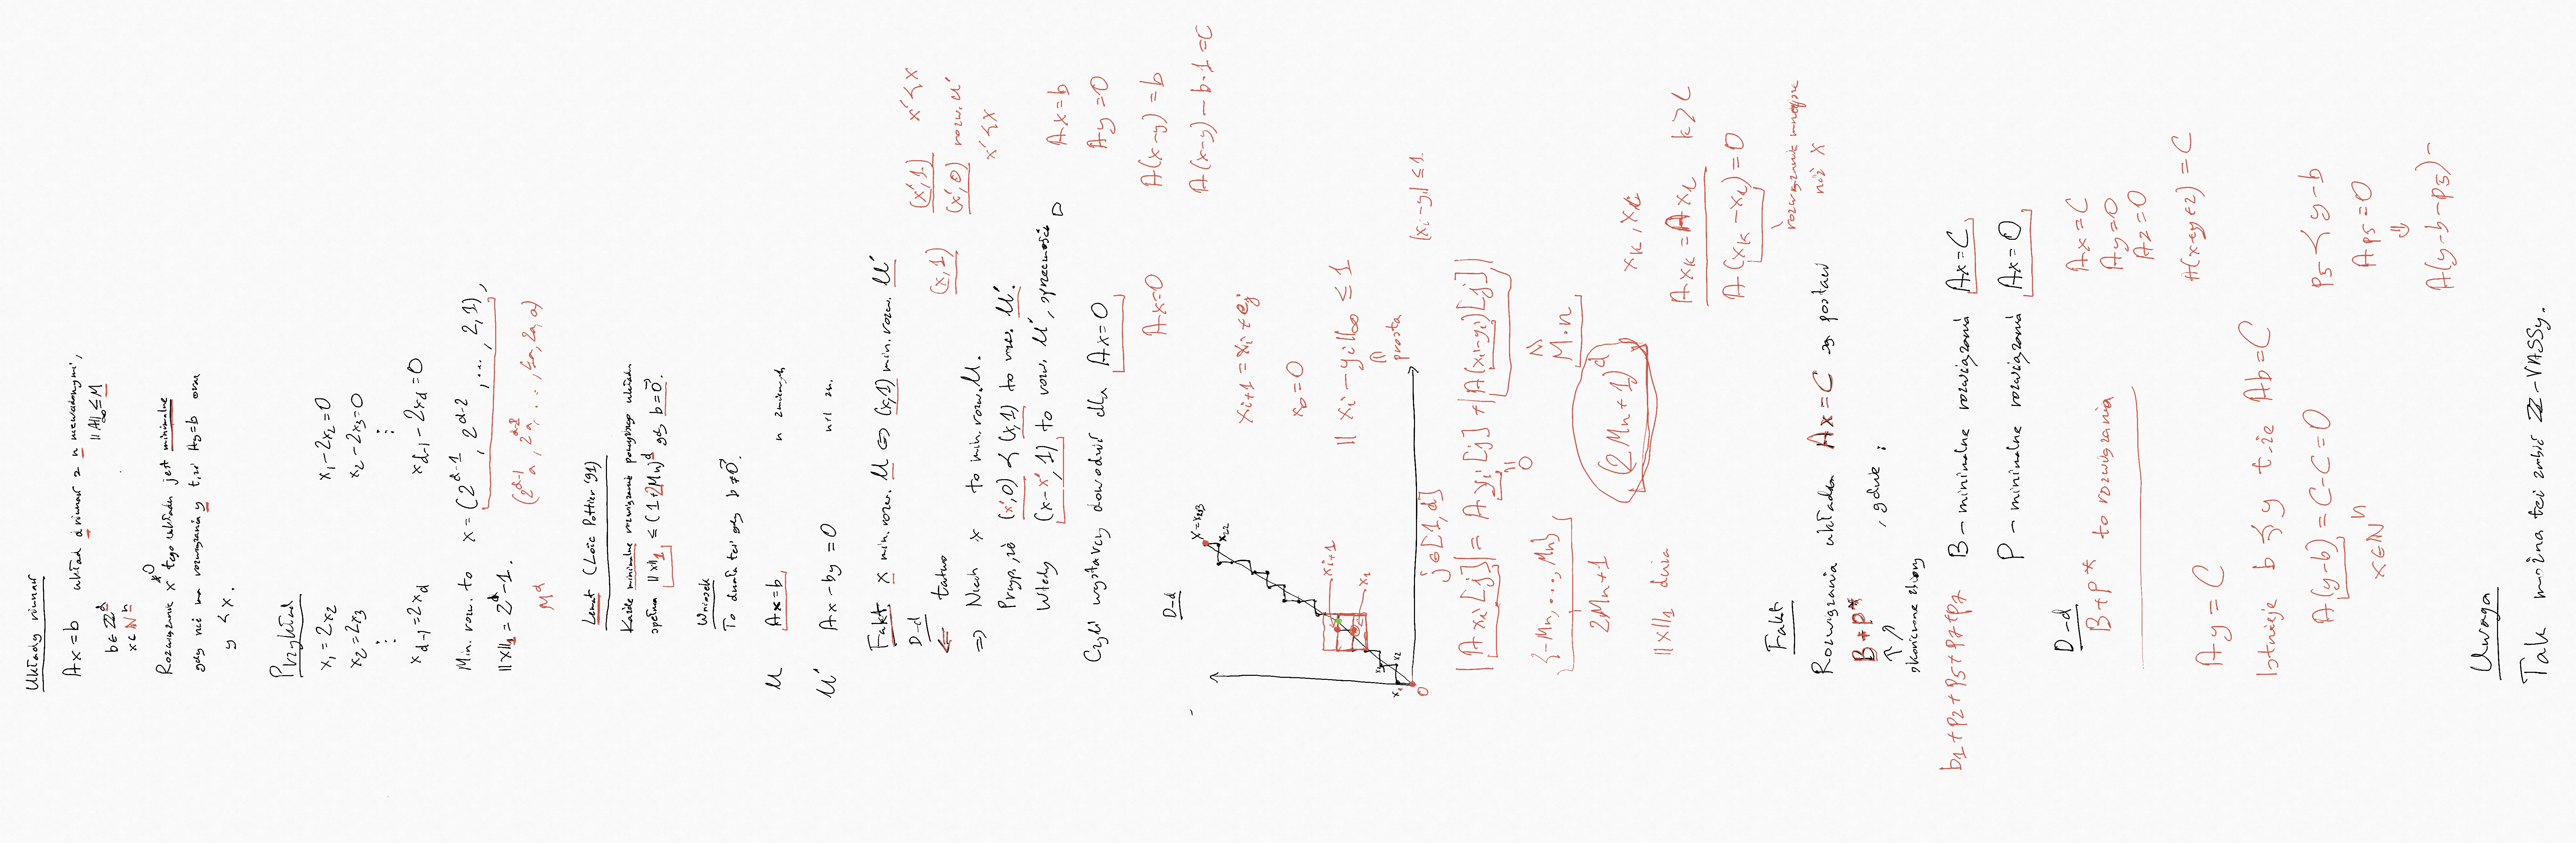 Układy równań
Ax = b układ d równań z n niewiadomymi,
b ∈ ℤ^d ‖A‖_∞ ≤ M
x ∈ ℕ^n
Rozwiązanie x ≠ 0 tego układu jest minimalne
gdy nie ma rozwiązania y t,że Ay = b oraz
y < x.
Przykład
x_1 = 2x_2 x_1 - 2x_2 = 0
x_2 = 2x_3 x_2 - 2x_3 = 0
⋮ ⋮
x_{d-1} = 2x_d x_{d-1} - 2x_d = 0
Min. rozw. to x = (2^{d-1}, 2^{d-2}, ..., 2, 1),
‖x‖_1 = 2^d - 1. (2^{d-1}a, 2^{d-2}a, ..., 4a, 2a, a)
M^d
Lemat (Loïc Pottier '91)
Każde minimalne rozwiązanie powyższego układu
spełnia ‖x‖_1 ≤ (1+2Mn)^d gdy b = 0⃗.
Wniosek
To działa też gdy b ≠ 0⃗.
U Ax = b n zmiennych
U' Ax - by = 0 n+1 zm.
Fakt x min. rozw. U ⇔ (x,1) min. rozw. U'
D-d
⇐ łatwo (x,1) (x',1) x' < x
(x',0) rozw. U'
x' < x
⇒ Niech x to min. rozw. U.
Przyp, że (x',0) < (x,1) to rozw. U'.
Wtedy (x-x',1) to rozw. U', sprzeczność □
Ax = b
Ay = 0
Czyli wystarczy dowodzić dla Ax = 0
A(x-y) = b
Ax = 0
A(x-y) - b·1 = C
D-d
x = x_{‖x‖}
x_{22}
x_{i+1}
x_i
x_2
x_1
0
x_{i+1} = x_i + e_j
x_0 = 0
‖x_i - y_i‖_∞ ≤ 1
prosta
j ∈ [1,d] |x_i - y_i| ≤ 1
|A x_i[j]| = A y_i[j] + |A(x_i - y_i)[j]|
0 M·n
{-Mn, ..., Mn}
2Mn+1 (2Mn+1)^d
‖x‖_1 duża x_k, x_L
A x_k = A x_L k > L
A(x_k - x_L) = 0
rozwiązanie mniejsze
niż x
Fakt
Rozwiązania układu Ax = C są postaci
B + P* , gdzie :
skończone zbiory
B - minimalne rozwiązania Ax = C
b_1 + p_2 + p_5 + p_7 + p_7
P - minimalne rozwiązania Ax = 0
D-d
B + P* to rozwiązania
Ax = C
Ay = 0
Az = 0
A(x+y+z) = C
Ay = C
Istnieje b ≤ y t.że Ab = C
A(y-b) = C - C = 0
x ∈ ℕ^n
p_5 < y - b
A p_5 = 0
⇓
A(y-b-p_5) =
Uwaga
Tak można też zrobić ℤ-VASSy.